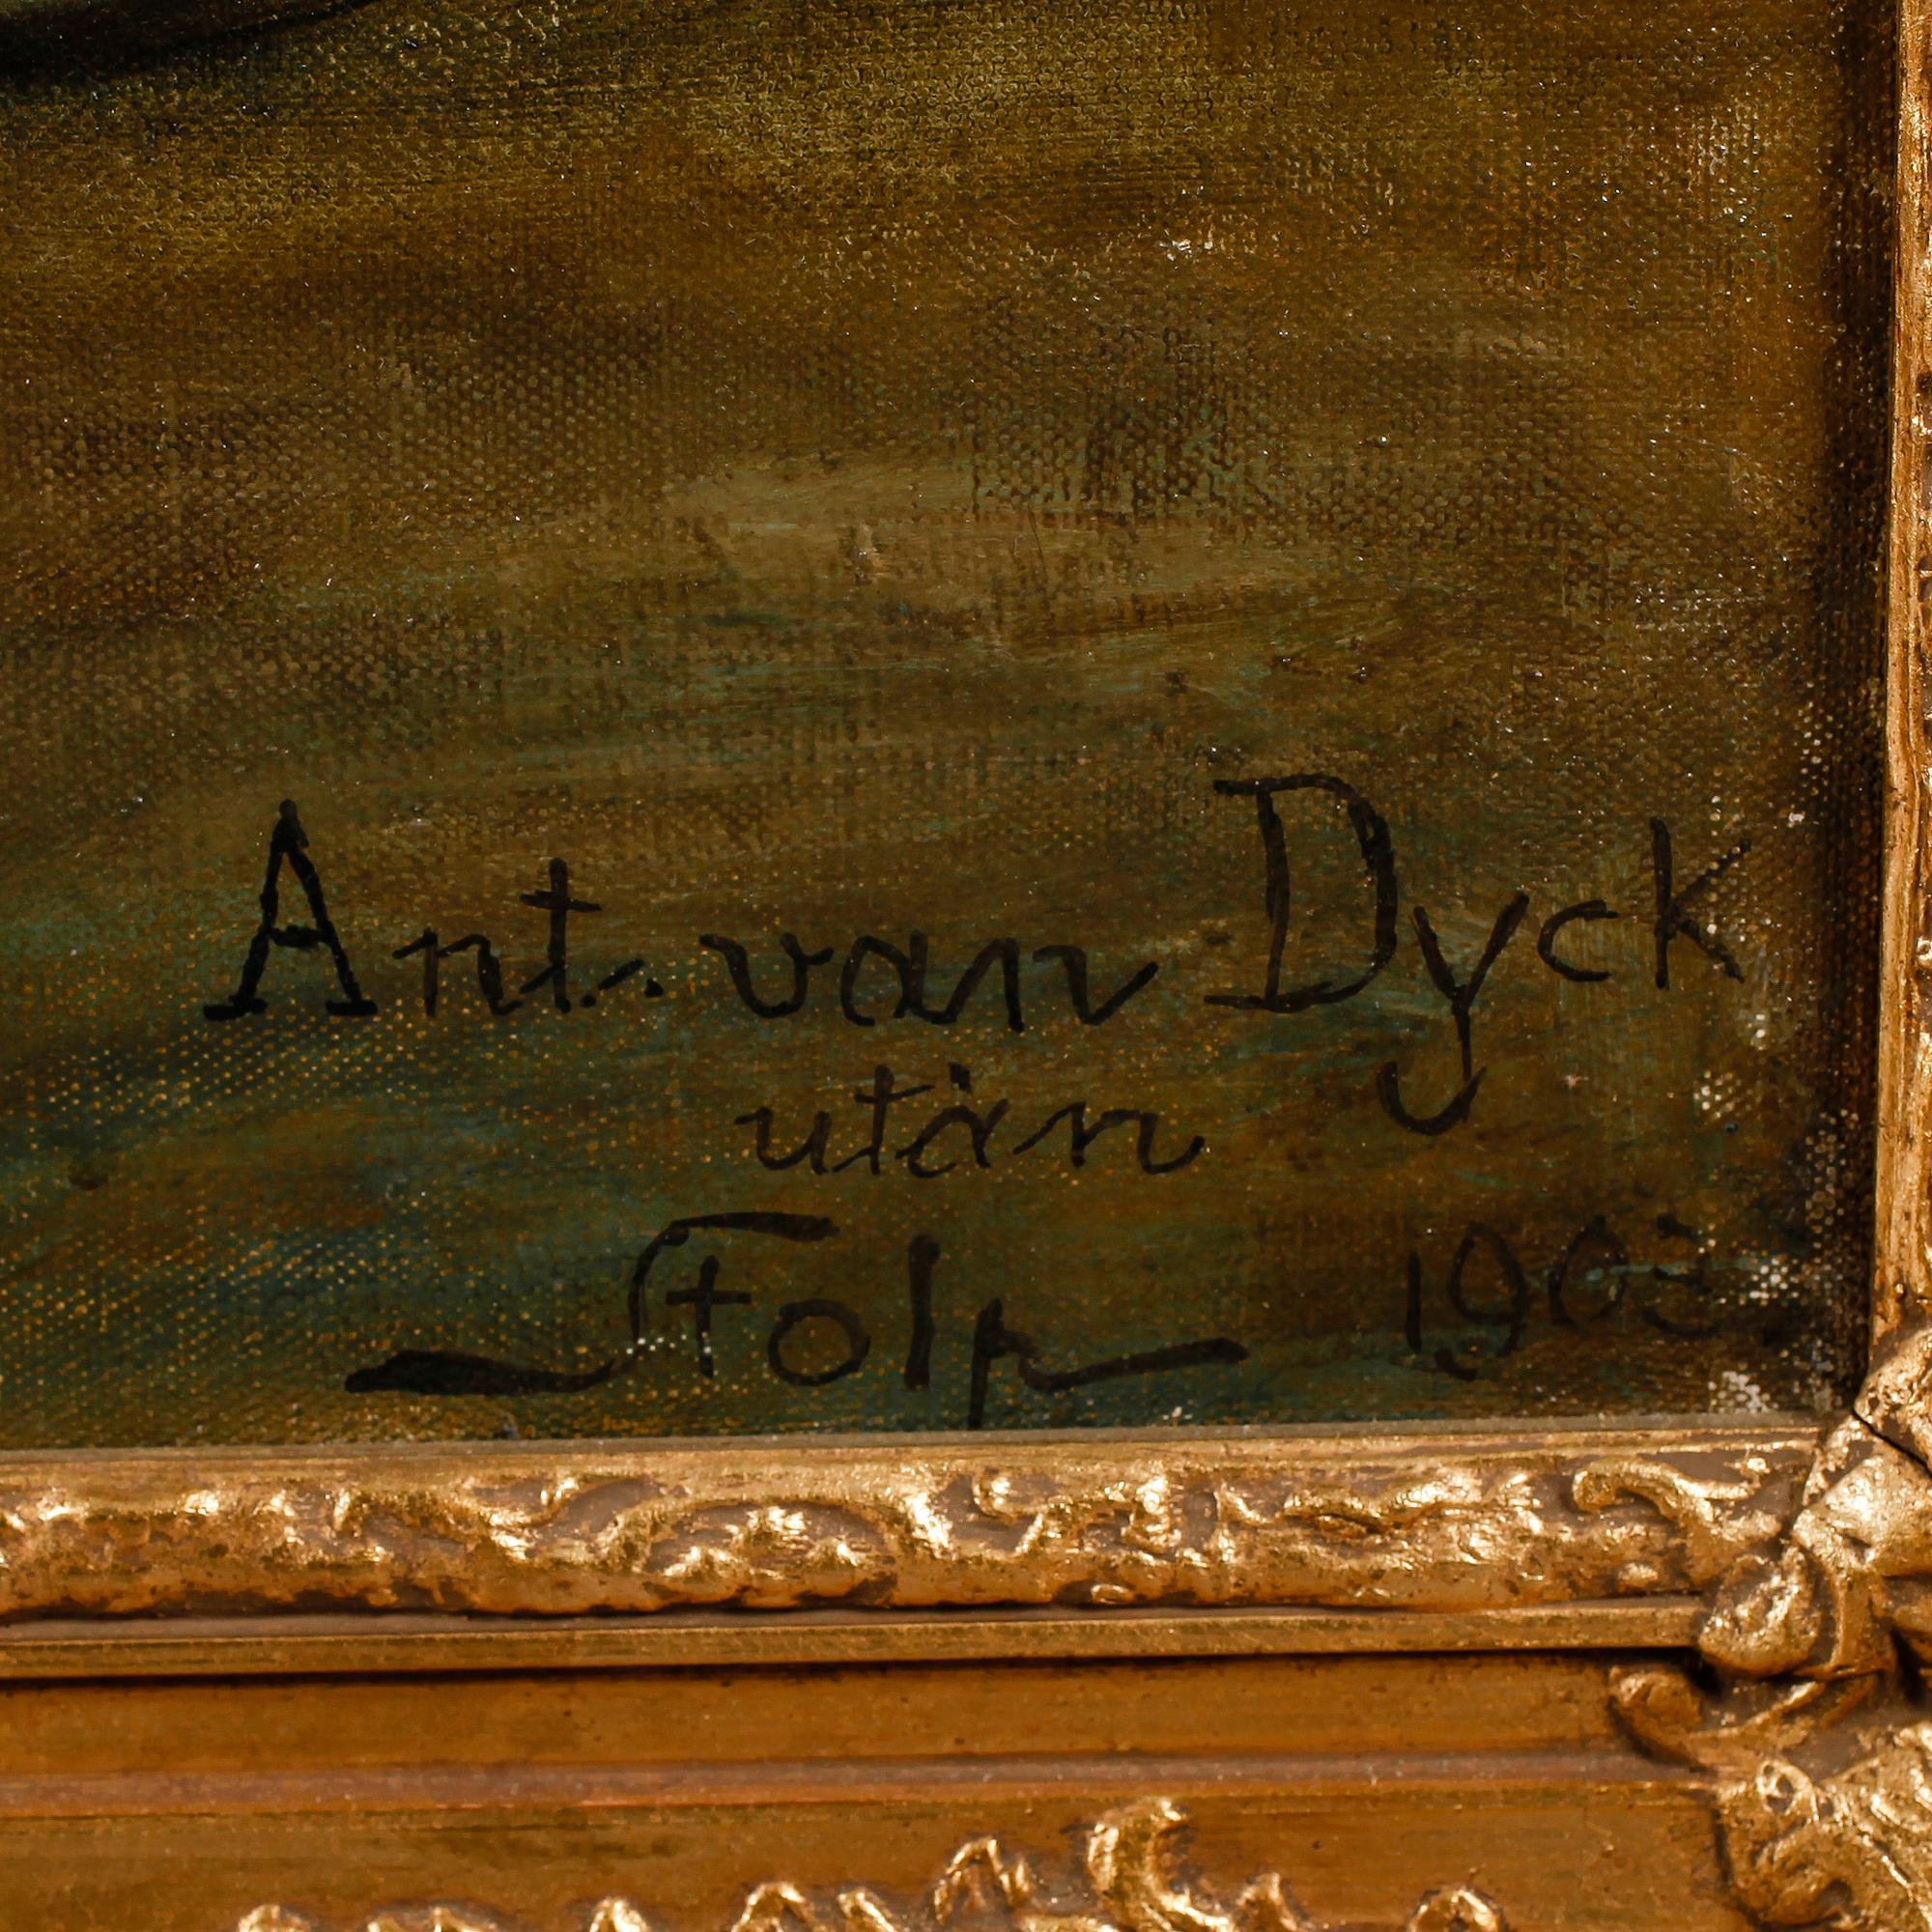 Ant. van Dyck
után
Stolp 1903